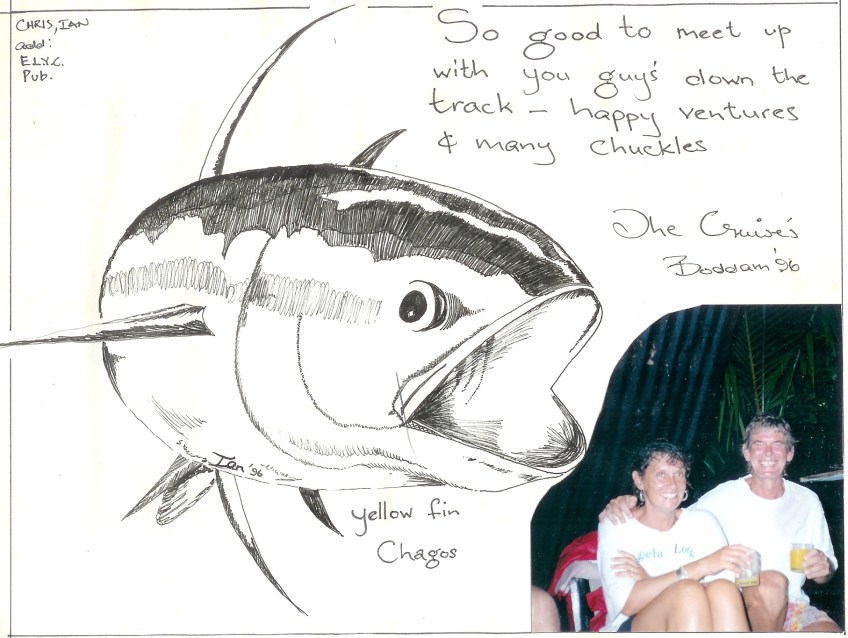 CHRIS, IAN
add:
E.I.Y.C.
Pub.
So good to meet up
with you guy's down the
track – happy ventures
& many chuckles
The Cruise's
Boddam '96
Ian '96
yellow fin
Chagos